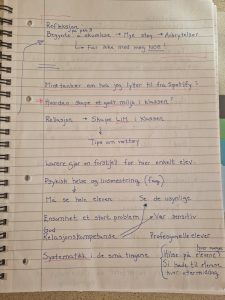 Refleksjon
på på?
Begynte å akumlese → Mye støy → Avbrytelser
↳ Får ikke med meg NOE!
Mine tanker om hva jeg lytter til fra Spotify?
→ Hvordan skape et godt miljø i klassen?
Relasjon → Skape lim i klassen
↓
Tips om verktøy
Lærere gjør en forskjell for hver enkelt elev
Psykisk helse og livsmestring (fag)
↓
Må se hele eleven Se de usynlige
Ensomhet et stort problem → Vær sensitiv
God
Relasjonskompetanse Profesjonelle elever
Systematikk i de små tingene
Hilse på elevene
Si hade til elevene
hver ettermiddag